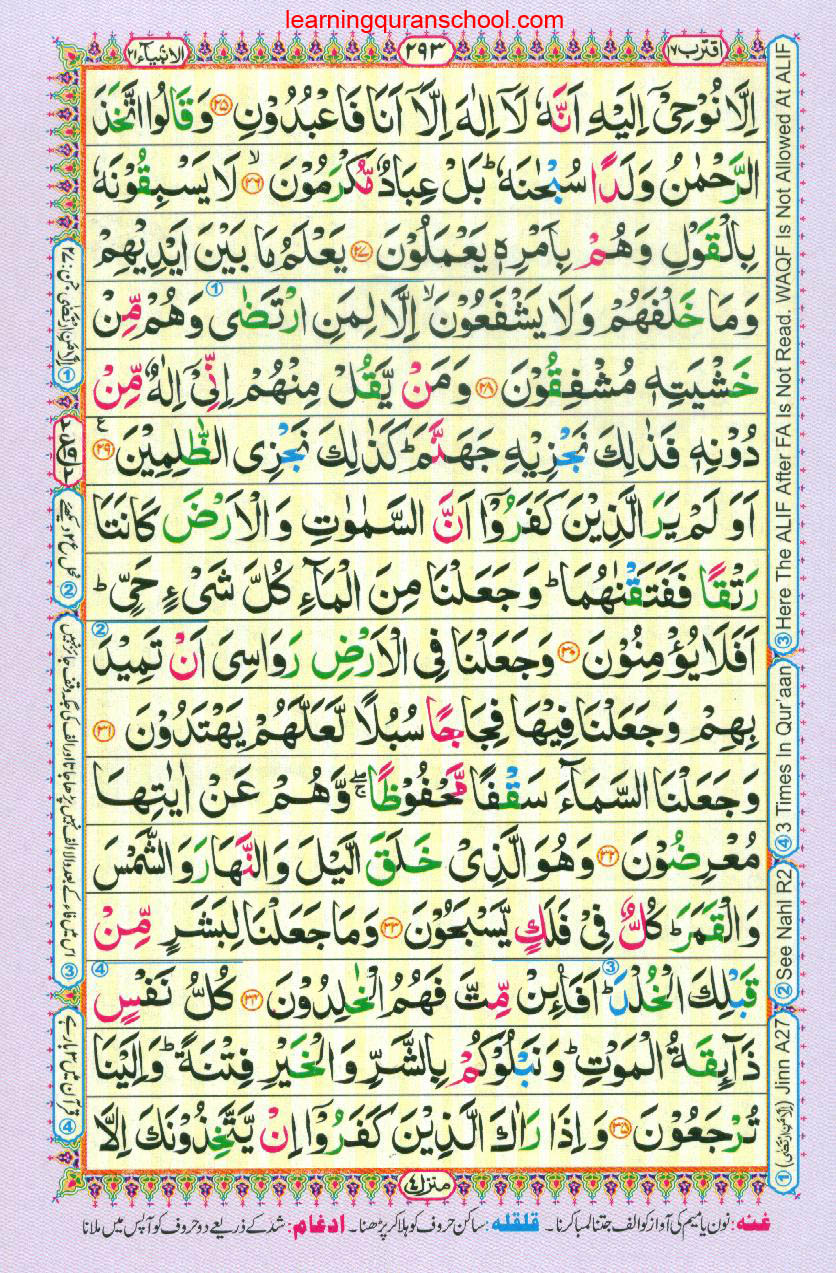 learningquranschool.com
اقترب ١٧
٢٩٣
الانبیآء ٢١
اِلَّا نُوْحِیْۤ اِلَیْهِ اَنَّهٗ لَاۤ اِلٰهَ اِلَّاۤ اَنَا فَاعْبُدُوْنِ ﴿۲۵﴾ وَ قَالُوا اتَّخَذَ
الرَّحْمٰنُ وَلَدًا سُبْحٰنَهٗ ؕ بَلْ عِبَادٌ مُّكْرَمُوْنَ ۙ﴿۲۶﴾ لَا یَسْبِقُوْنَهٗ
بِالْقَوْلِ وَهُمْ بِاَمْرِهٖ یَعْمَلُوْنَ ﴿۲۷﴾ یَعْلَمُ مَا بَیْنَ اَیْدِیْهِمْ
وَمَا خَلْفَهُمْ وَلَا یَشْفَعُوْنَ ۙ اِلَّا لِمَنِ ارْتَضٰی وَهُمْ مِّنْ
خَشْیَتِهٖ مُشْفِقُوْنَ ﴿۲۸﴾ وَمَنْ یَّقُلْ مِنْهُمْ اِنِّیْۤ اِلٰهٌ مِّنْ
دُوْنِهٖ فَذٰلِكَ نَجْزِیْهِ جَهَنَّمَ ؕ كَذٰلِكَ نَجْزِی الظّٰلِمِیْنَ ﴿۲۹﴾ ع
اَوَ لَمْ یَرَ الَّذِیْنَ كَفَرُوْۤا اَنَّ السَّمٰوٰتِ وَالْاَرْضَ كَانَتَا
رَتْقًا فَفَتَقْنٰهُمَا ؕ وَجَعَلْنَا مِنَ الْمَآءِ كُلَّ شَیْءٍ حَیٍّ ؕ
اَفَلَا یُؤْمِنُوْنَ ﴿۳۰﴾ وَجَعَلْنَا فِی الْاَرْضِ رَوَاسِیَ اَنْ تَمِیْدَ
بِهِمْ وَجَعَلْنَا فِیْهَا فِجَاجًا سُبُلًا لَّعَلَّهُمْ یَهْتَدُوْنَ ﴿۳۱﴾
وَجَعَلْنَا السَّمَآءَ سَقْفًا مَّحْفُوْظًا ۖۚ وَّهُمْ عَنْ اٰیٰتِهَا
مُعْرِضُوْنَ ﴿۳۲﴾ وَهُوَ الَّذِیْ خَلَقَ الَّیْلَ وَالنَّهَارَ وَالشَّمْسَ
وَالْقَمَرَ ؕ كُلٌّ فِیْ فَلَكٍ یَّسْبَحُوْنَ ﴿۳۳﴾ وَمَا جَعَلْنَا لِبَشَرٍ مِّنْ
قَبْلِكَ الْخُلْدَ ؕ اَفَا۠ئِنْ مِّتَّ فَهُمُ الْخٰلِدُوْنَ ﴿۳۴﴾ كُلُّ نَفْسٍ
ذَآىِٕقَةُ الْمَوْتِ ؕ وَنَبْلُوْكُمْ بِالشَّرِّ وَالْخَیْرِ فِتْنَةً ؕ وَاِلَیْنَا
تُرْجَعُوْنَ ﴿۳۵﴾ وَاِذَا رَاٰكَ الَّذِیْنَ كَفَرُوْۤا اِنْ یَّتَّخِذُوْنَكَ اِلَّا
منزل ٤
① (اِلَّا مَنِ ارْتَضٰی) Jinn A27
② See Nahl R2
④ 3 Times In Qur'aan
③ Here The ALIF After FA Is Not Read. WAQF Is Not Allowed At ALIF
① اِلَّا مَنِ ارْتَضٰی جن: ۲۷
② نحل ع ۲ دیکھئے
③ اس میں فاء کے بعد والا الف نہیں پڑھا جاتا اور الف کی جگہ وقف جائز نہیں
④ قرآن میں ۳ بار ہے
غنہ: نون یا میم کی آواز کو الف جتنا لمبا کرنا۔ قلقلہ: ساکن حروف کو ہلا کر پڑھنا۔ ادغام: شد کے ذریعے دو حروف کو آپس میں ملانا